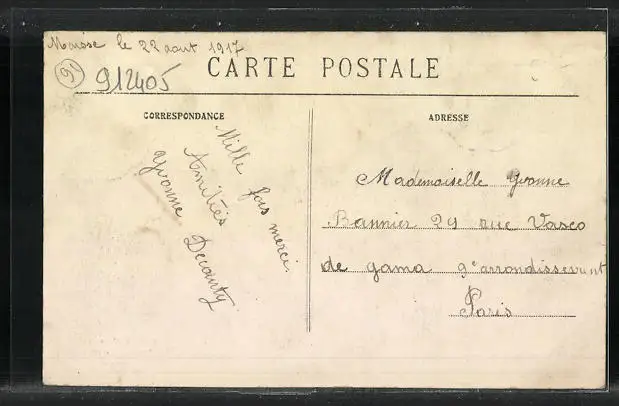 le 22 aout 1917
91
912405
CARTE POSTALE
CORRESPONDANCE
ADRESSE
Mille fois merci
Amitiés
Yvonne
Mademoiselle Yvonne
29 rue Vasco
de gama 9e arrondissement
Paris